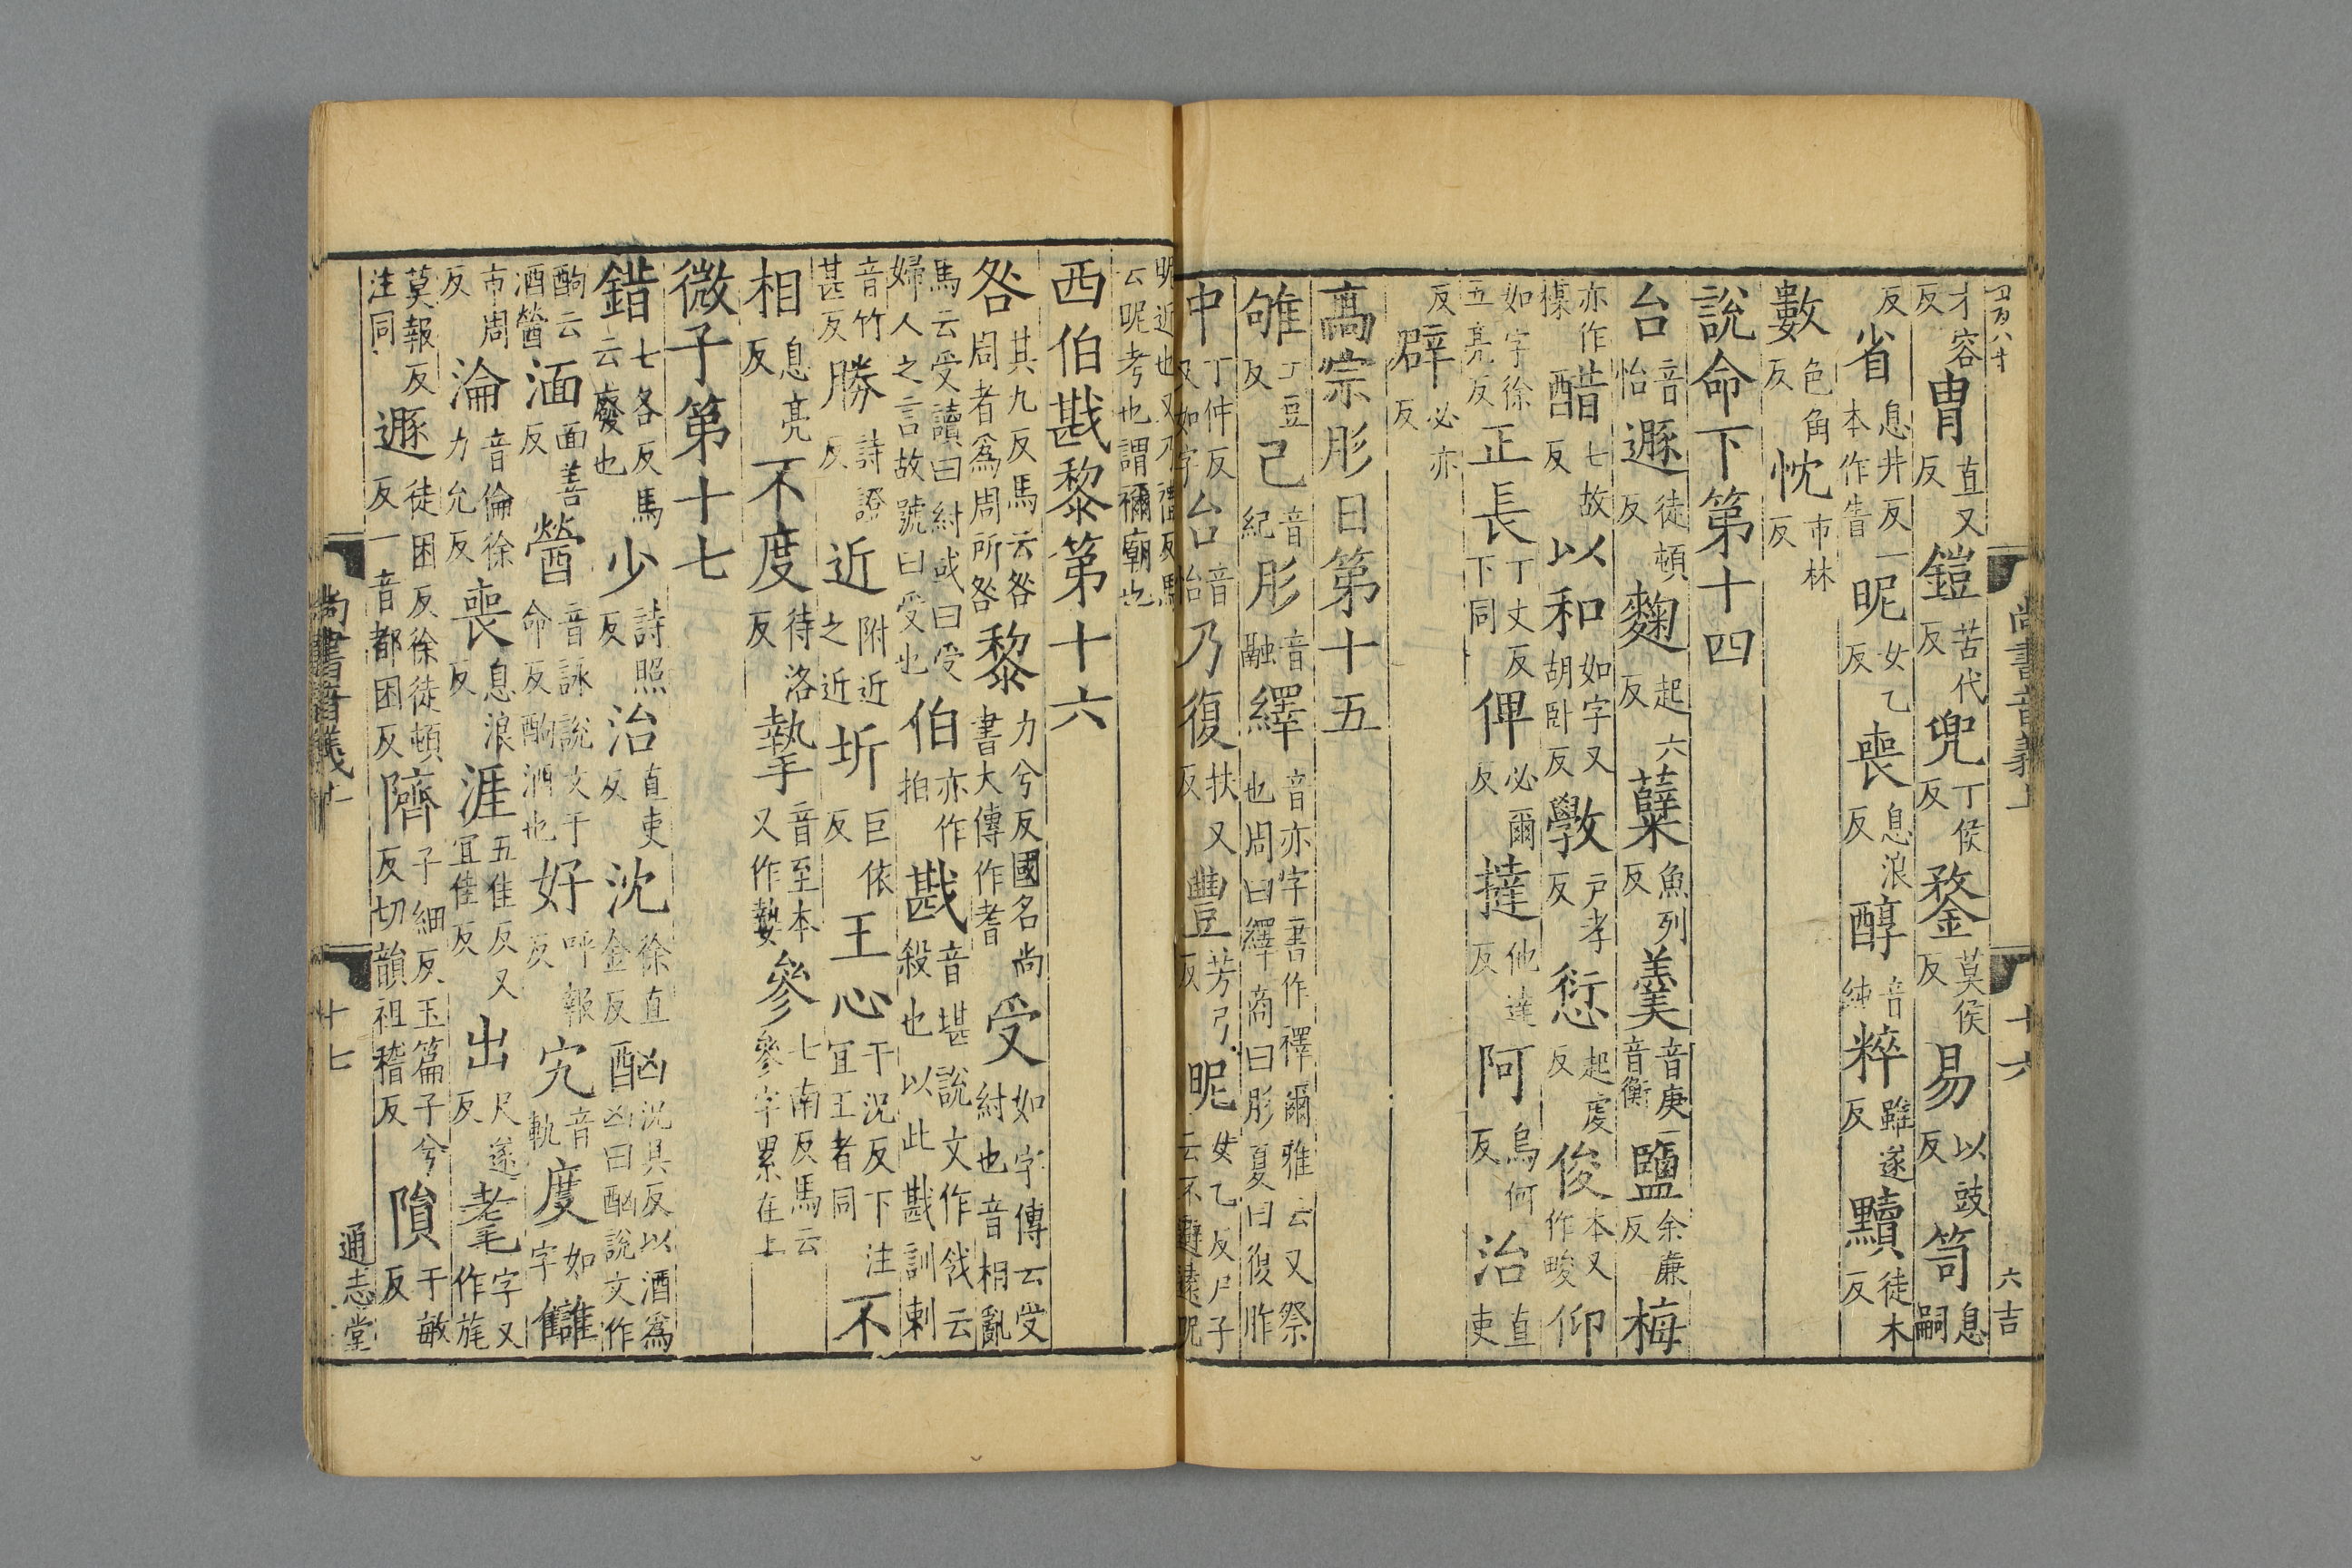 四百八十 尚書音義上 十六 六吉
才容反冑直又反鎧苦代反兜丁侯反鍪莫侯反易以豉反笥息嗣
反省息井反一本作眚昵女乙反喪息浪反醇音純粹雖遂反黷徒木反
數色角反忱市林反
說命下第十四
台音怡遯徒頓反麴起六反糵魚列反羹音庚一音衡鹽余廉反梅
亦作楳醋七故反以和如字又胡卧反斆戶孝反愆起虔反俊本又作畯仰
如字徐五亮反正長丁丈反下同俾必爾反撻他達反阿烏何反治直吏
反辟必亦反
高宗肜日第十五
雊丁豆反己音紀肜音融繹音亦字書作襗爾雅云又祭也周曰繹商曰肜夏曰復胙
中丁仲反又如字台音怡乃復扶又反豐芳弓反昵女乙反尸子云不避遠昵
昵近也又乃禮反馬云昵考也謂禰廟也
西伯戡黎第十六
咎其九反馬云咎周者爲周所咎黎力兮反國名尚書大傳作耆受如字傳云受紂也音相亂
馬云受讀曰紂或曰受婦人之言故號曰受也伯亦作拍戡音堪說文作𢦟云殺也以此戡訓刺
音竹甚反勝詩證反近附近之近圻巨依反王心于況反下注宜王者同不
相息亮反不度待洛反摯音至本又作𡠗參七南反馬云參字累在上
微子第十七
錯七各反馬云廢也少詩照反治直吏反沈徐直金反酗況具反以酒爲凶曰酗說文作
酌云酒醟湎面善反醟音詠說文于命反酗酒也好呼報反宄音軌度如字讎
市周反淪音倫徐力允反喪息浪反涯五佳反又宜佳反出尺遂反耄字又作旄
莫報反注同遯徒困反徐徒頓反一音都困反隮子細反玉篇子兮反切韻祖稽反隕于敏反
尚書音義上 十七 通志堂